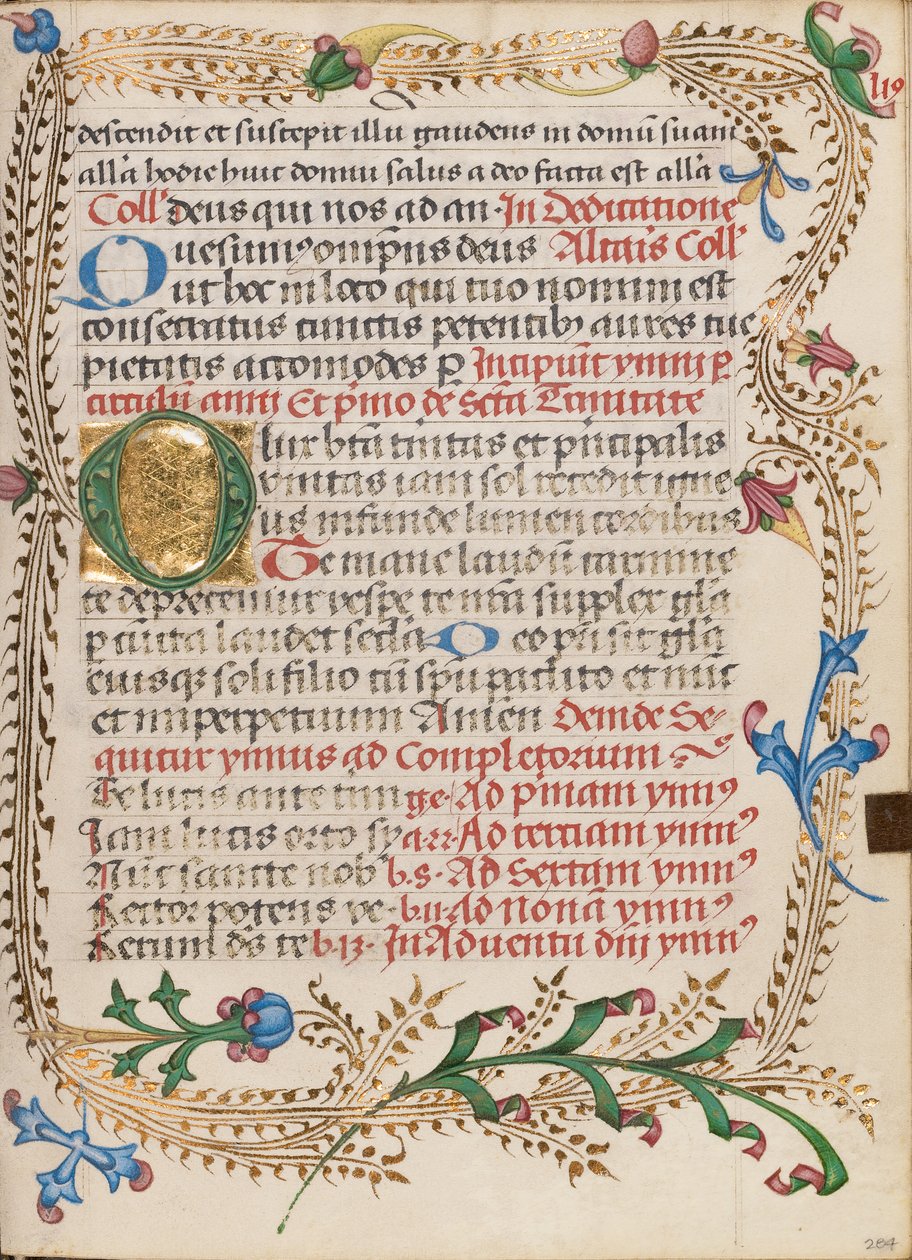 l19
descendit et suscepit illū gaudens in domū suam
allā hodie huic domui salus a deo facta est allā
Coll' deus qui nos ad an· In Dedicatione
Quesumꝰ omp̄ns deus Altaris Coll'
ut hoc in loco qui tuo nomini est
consecratus cunctis petentibꝫ aures tue
pietatis accomodes ꝑ Incipiūt ymni ꝑ
circulū anni Et p̄mo de Sct̄a Trinitate
O lux btā t̄nitas et p̄ncipalis
vnitas iam sol recedit igne
us infunde lumen cordibus
Te mane laudū carmine
te deprecemur vespe te nr̄a supplex glā
ꝑ cūcta laudet sec̄la Deo pr̄i sit glā
eiusqꝫ soli filio cū spū paclito et nūc
et in perpetuum Amen Deinde Se-
quitur ymnus ad Completorium
Te lucis ante ter̄mi ge· Ad p̄mam ymnꝰ
Iam lucis orto sy a·22· Ad terciam ymnꝰ
Nūc sancte nob' b·8· Ad Sextam ymnꝰ
Rector potens ve· b·11· Ad Nonā ymnꝰ
Rerum ds̄ te b·13· In Aduentu dn̄i ymnꝰ
284